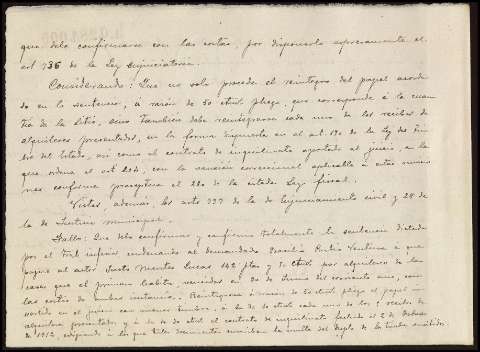 que debo confirmarse con las costas, por disponerlo expresamente el
art 736 de la Ley Enjuiciatoria.
Considerando: Que no solo procede el reintegro del papel inverti-
do en la sentencia, á razón de 50 cts. pliego, que corresponde á la cuan-
tía de la litis, sino también debe reintegrarse cada uno de los recibos de
alquileres presentados, en la forma dispuesta en el art. 190 de la ley del Tim-
bre del Estado, así como el contrato de inquilinato aportado al juicio, á lo
que ordena el art 204, con la sanción correccional aplicable á estas
nas conforme preceptua el 220 de la citada Ley fiscal.
Vistos, además, los arts 737 de la de Enjuiciamiento civil y 29 de
la de Justicia municipal.
Fallo: Que debo confirmar y confirmo totalmente la sentencia dictada
por el Tral inferior condenando al demandado á que
pague al actor Justo Montes Lucas 142 ptas y 50 cts por alquileres de la
casa que el primero habita, vencidos en 30 de Junio del corriente año, con
las costas de ambas instancias. Reintégrese á razón de 50 cts pliego el papel in-
vertido en el juicio con menor timbre, á 10 cts cada uno de los recibos de
alquileres presentados y á el contrato de inquilinato fechado el 2 de Febrero
de 1912, exigiendo á los que tales documentos la multa del de la timbre